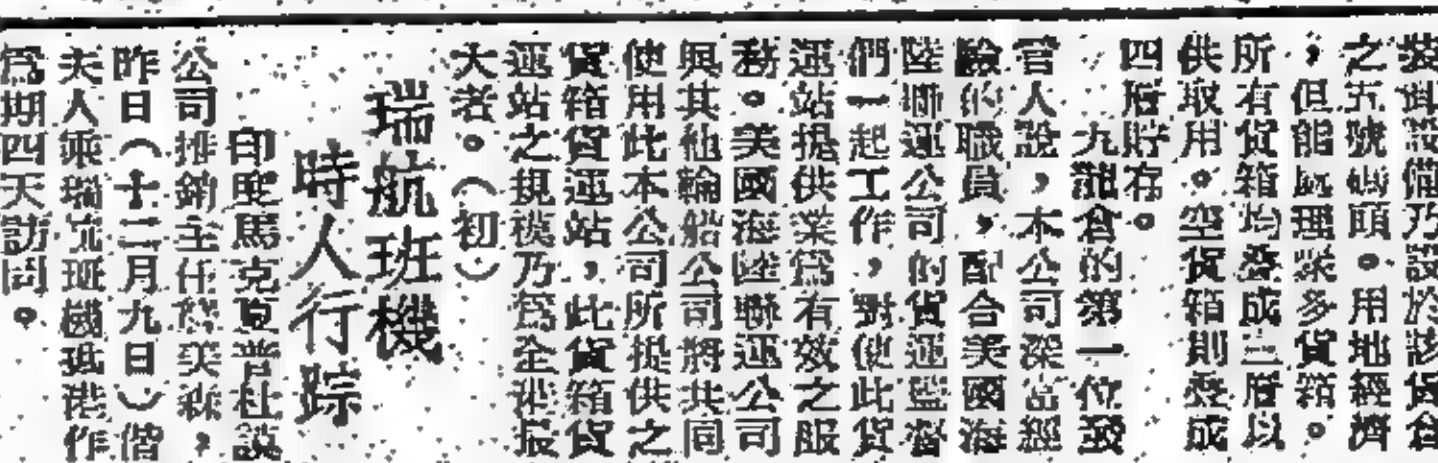 裝卸設備乃設於該貨倉
之五號碼頭。用地經濟
，但能處理衆多貨箱。
所有貨箱均叠成三層以
供取用。空貨箱則叠成
四層貯存。
九龍倉的第一位發
言人說，本公司深富經
驗的職員，配合美國海
陸聯運公司的貨運監督
們一起工作，對使此貨
運站提供業爲有效之服
務。美國海陸聯運公司
與其他輪船公司將共同
使用此本公司所提供之
貨箱貨運站，此貨箱貨
運站之規模乃爲全港最
大者。（初）
瑞航班機
時人行踪
印度馬克夏普杜談
公司推銷主任詹美森，
昨日（十二月九日）偕
夫人乘瑞航班機抵港作
爲期四天訪問。